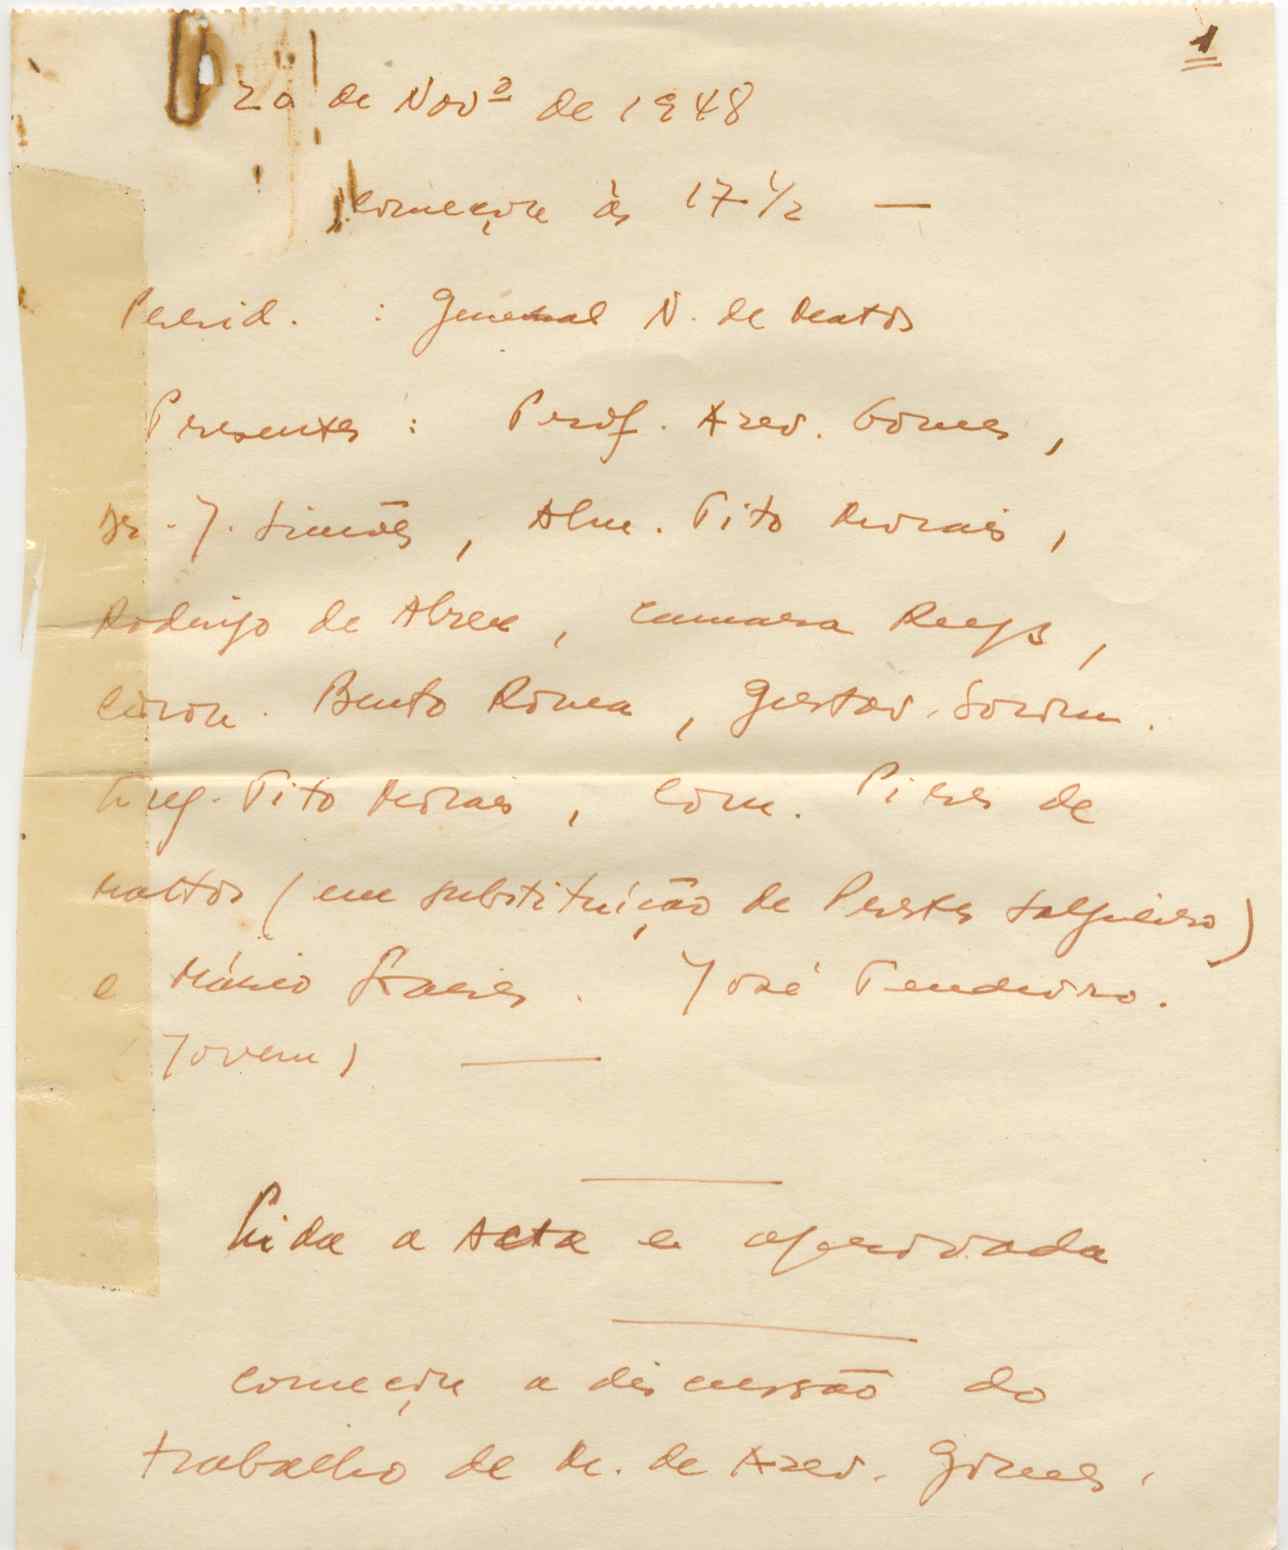 1
20 de Novº de 1948
começou às 17 1/2 —
Presid. : General N. de Matos
Presentes : Prof. Azev. Gomes,
Dr. J. Simões, Alm. Tito Morais,
Rodrigo de Abreu, Camara Reys,
Coron. Bento Roma, Gustav. Sorom.
Eng. Tito Morais, Com. Pires de
Mattos (em substituição de Prestes Salgueiro)
e Mário Soares. José Tendeiro.
(Jovem) —
Lida a Acta e aprovada
começou a discussão do
trabalho de M. de Azev. Gomes.